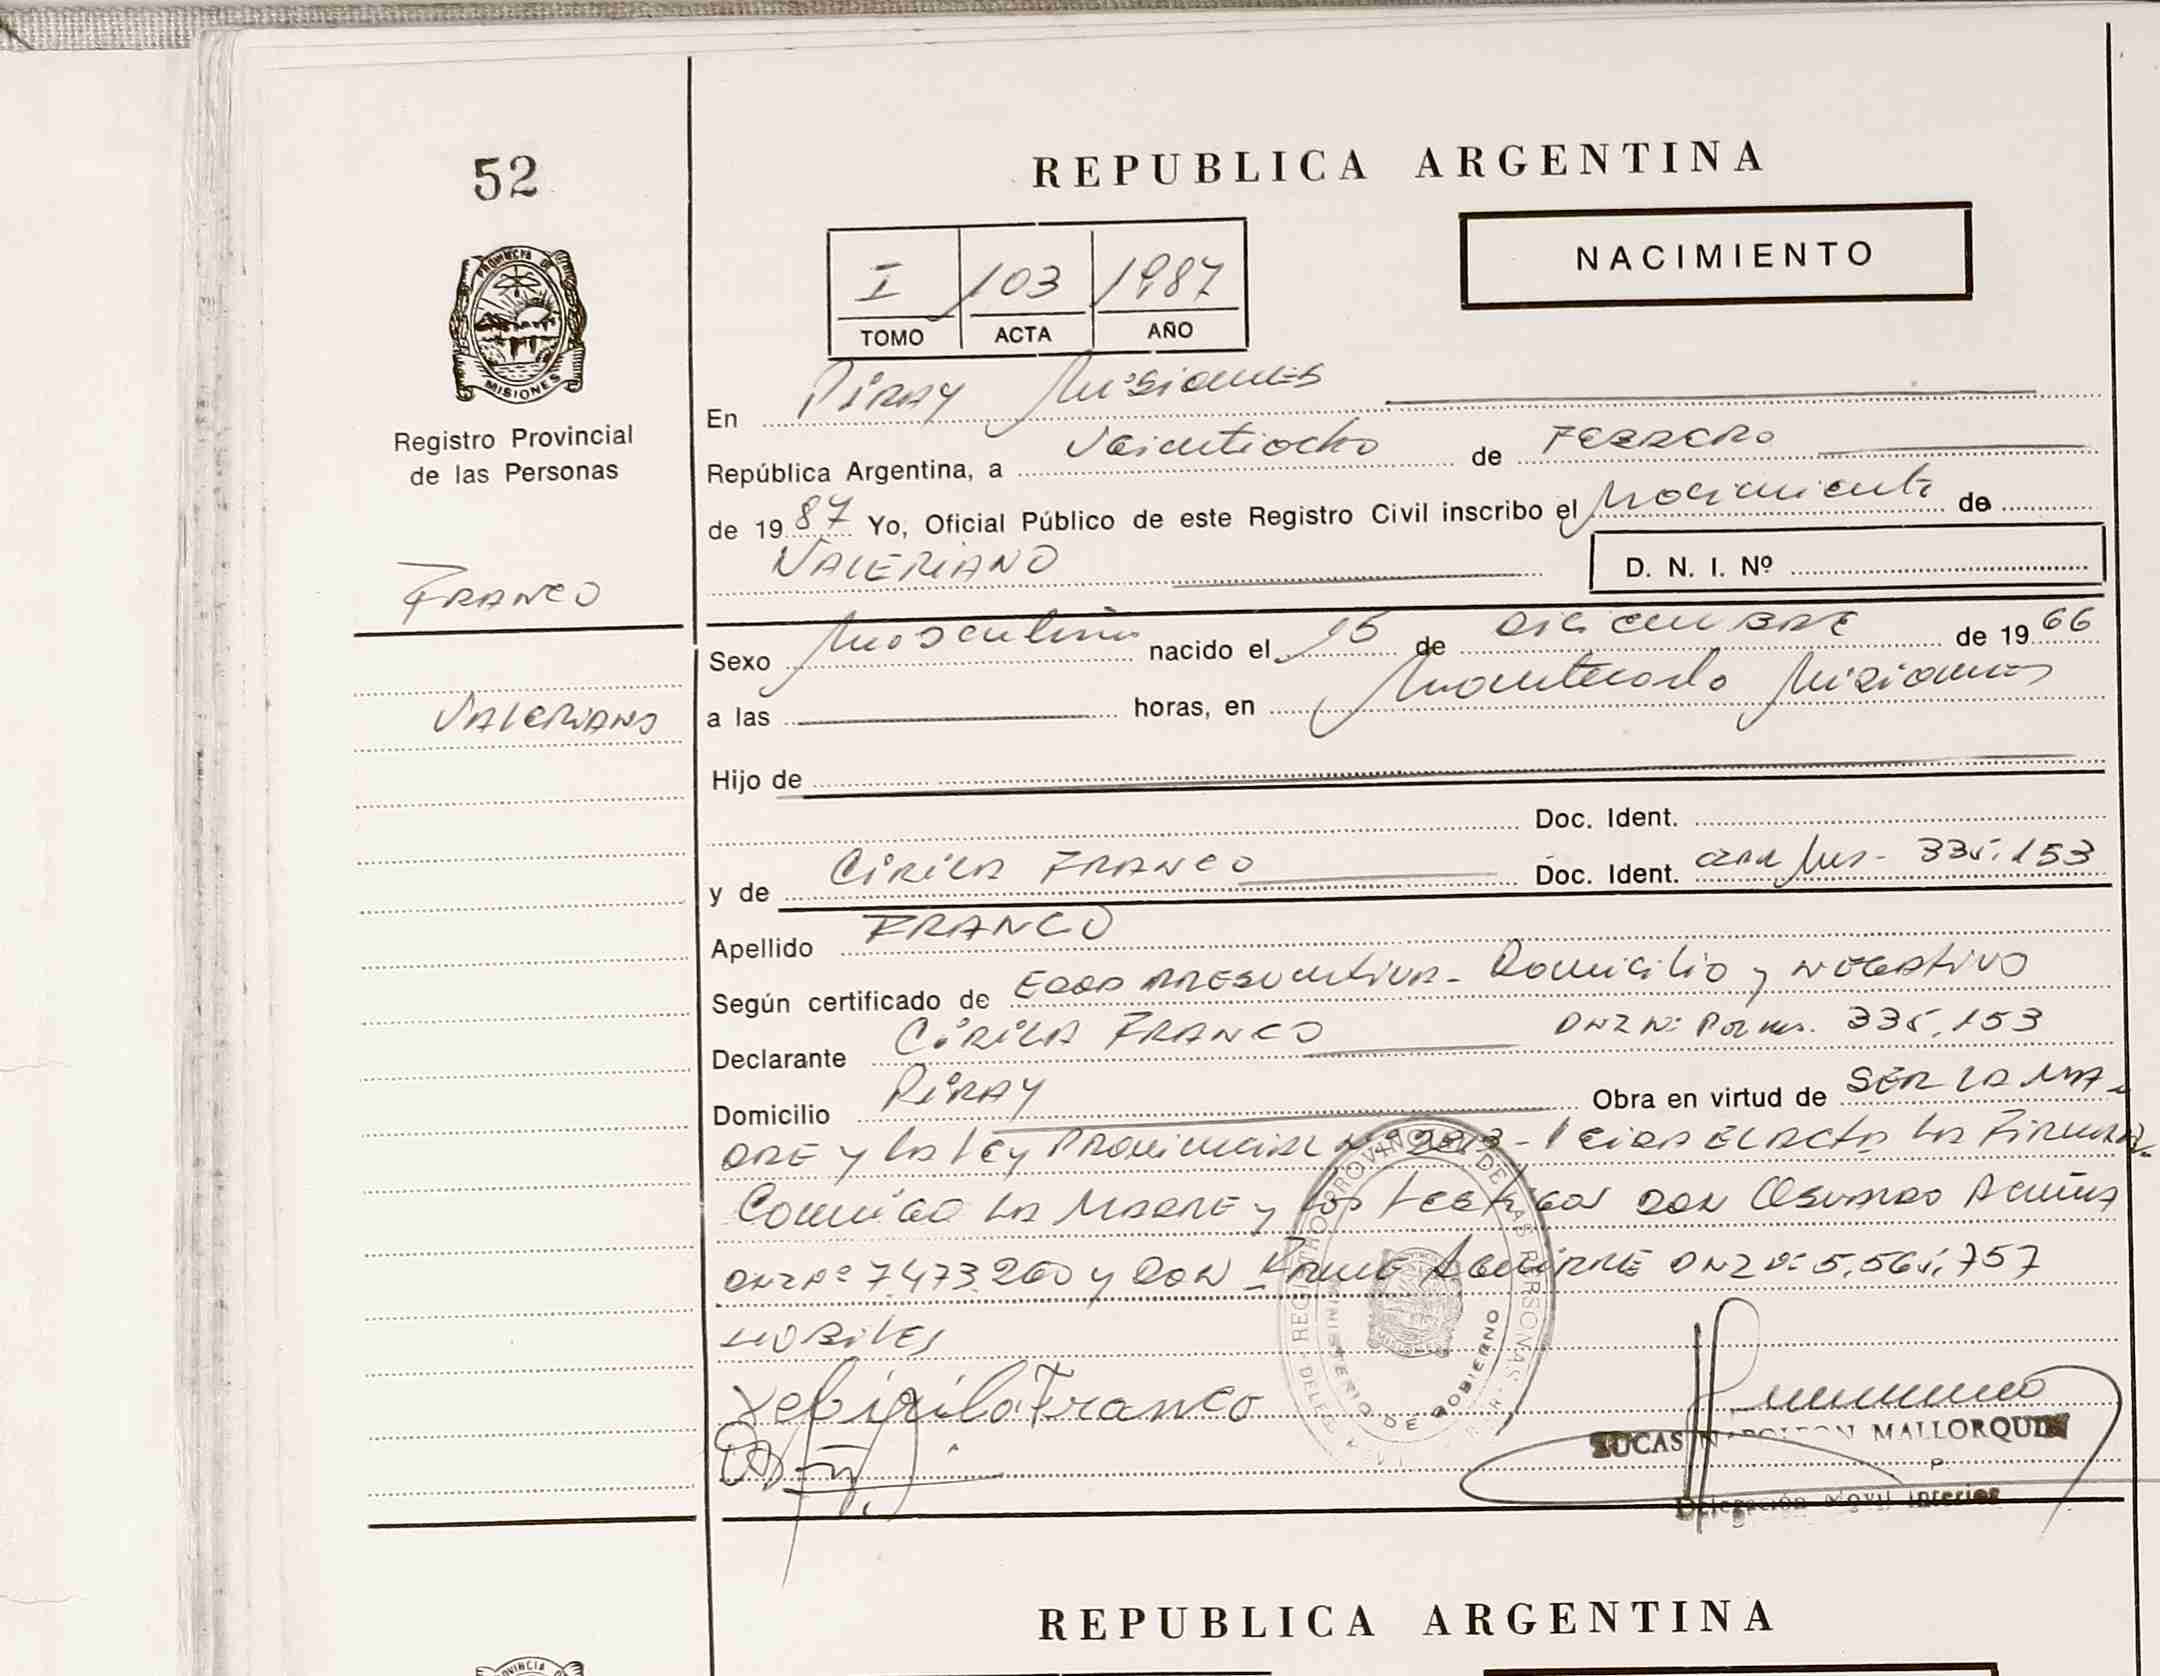 52
PROVINCIA DE
MISIONES
Registro Provincial
de las Personas
FRANCO
VALERIANO
REPUBLICA ARGENTINA
NACIMIENTO
I 103 1987
TOMO ACTA AÑO
En Piray Misiones
República Argentina, a Veintiocho de FEBRERO
de 1987 Yo, Oficial Público de este Registro Civil inscribo el Nacimiento de
VALERIANO D. N. I. Nº
Sexo Masculino nacido el 15 de DICIEMBRE de 1966
a las horas, en Montecarlo Misiones
Hijo de
Doc. Ident.
y de CIRILA FRANCO Doc. Ident. 335.153
Apellido FRANCO
Según certificado de EDAD PRESUNTIVA - Domicilio y NEGATIVO
Declarante CIRILA FRANCO DNI Nº Pol Mis. 335.153
Domicilio PIRAY Obra en virtud de SER LA MA-
DRE y LA LEY PROVINCIAL Nº - LEIDA EL ACTA LA FIRMAN
Conmigo LA MADRE y LOS Testigos DON OSVALDO ACUÑA
DNI Nº 7.473.260 y DON AGUIRRE DNI Nº 5.561.757
HABILES
Franco
REGISTRO PROVINCIAL DE LAS PERSONAS
MINISTERIO DE GOBIERNO
LUCAS NAPOLEON MALLORQUIN
Delegación Móvil Interior
REPUBLICA ARGENTINA
PROVINCIA